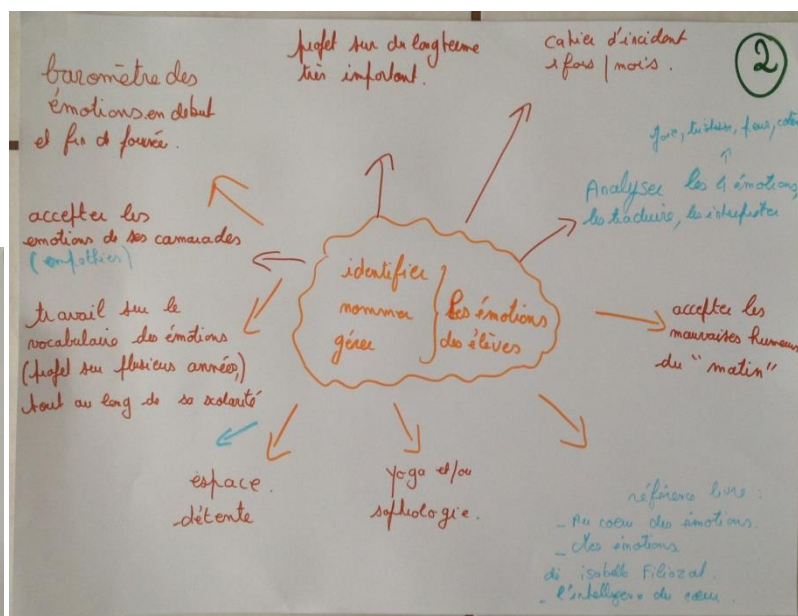 projet sur du long terme
très important.
cahier d'incident
1 fois / mois.
2
baromètre des
émotions en début
et fin de journée.
joie, tristesse, peur, colère
Analyser les 4 émotions,
les traduire, les interpréter
accepter les
emotions de ses camarades
(empathier)
identifier
nommer
gérer
les émotions
des élèves
travail sur le
vocabulaire des émotions
(projet sur plusieurs années,)
tout au long de sa scolarité
accepter les
mauvaises humeurs
du "matin"
espace
détente
yoga et/ou
sophologie.
référence livre :
- Au coeur des émotions.
- Les émotions
de isabelle Filiozat.
- l'intelligence du coeur.